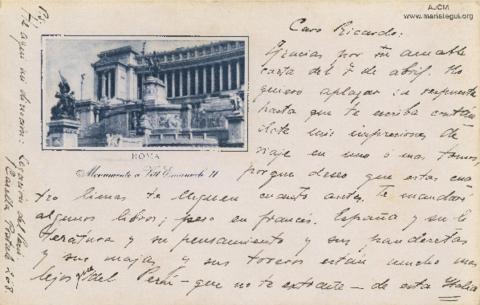 AJCM
www.mariategui.org
Caro Ricardo:
Gracias por tu amable
carta del 7 de abril. No
quiero aplazar la respuesta
hasta que te escriba contán
dote mis impresiones de
viaje en uno o mas tomos,
porque deseo que estas cua
tro líneas te lleguen cuanto antes. te mandaré
algunos libros; pero en francés. España y su li
teratura y su pensamiento y sus panderetas
y sus majas y sus toreros están mucho mas
lejos que del Perú - que no te extrañe - de esta Italia
ROMA
Monumento a Vitt. Emanuele II
mi dirección: Legación del Perú
Casella Postale 208